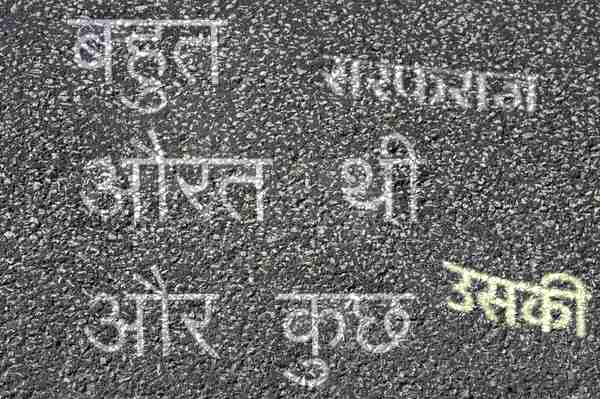 बहुत सरफराज
औरत थी
और कुछ उसकी